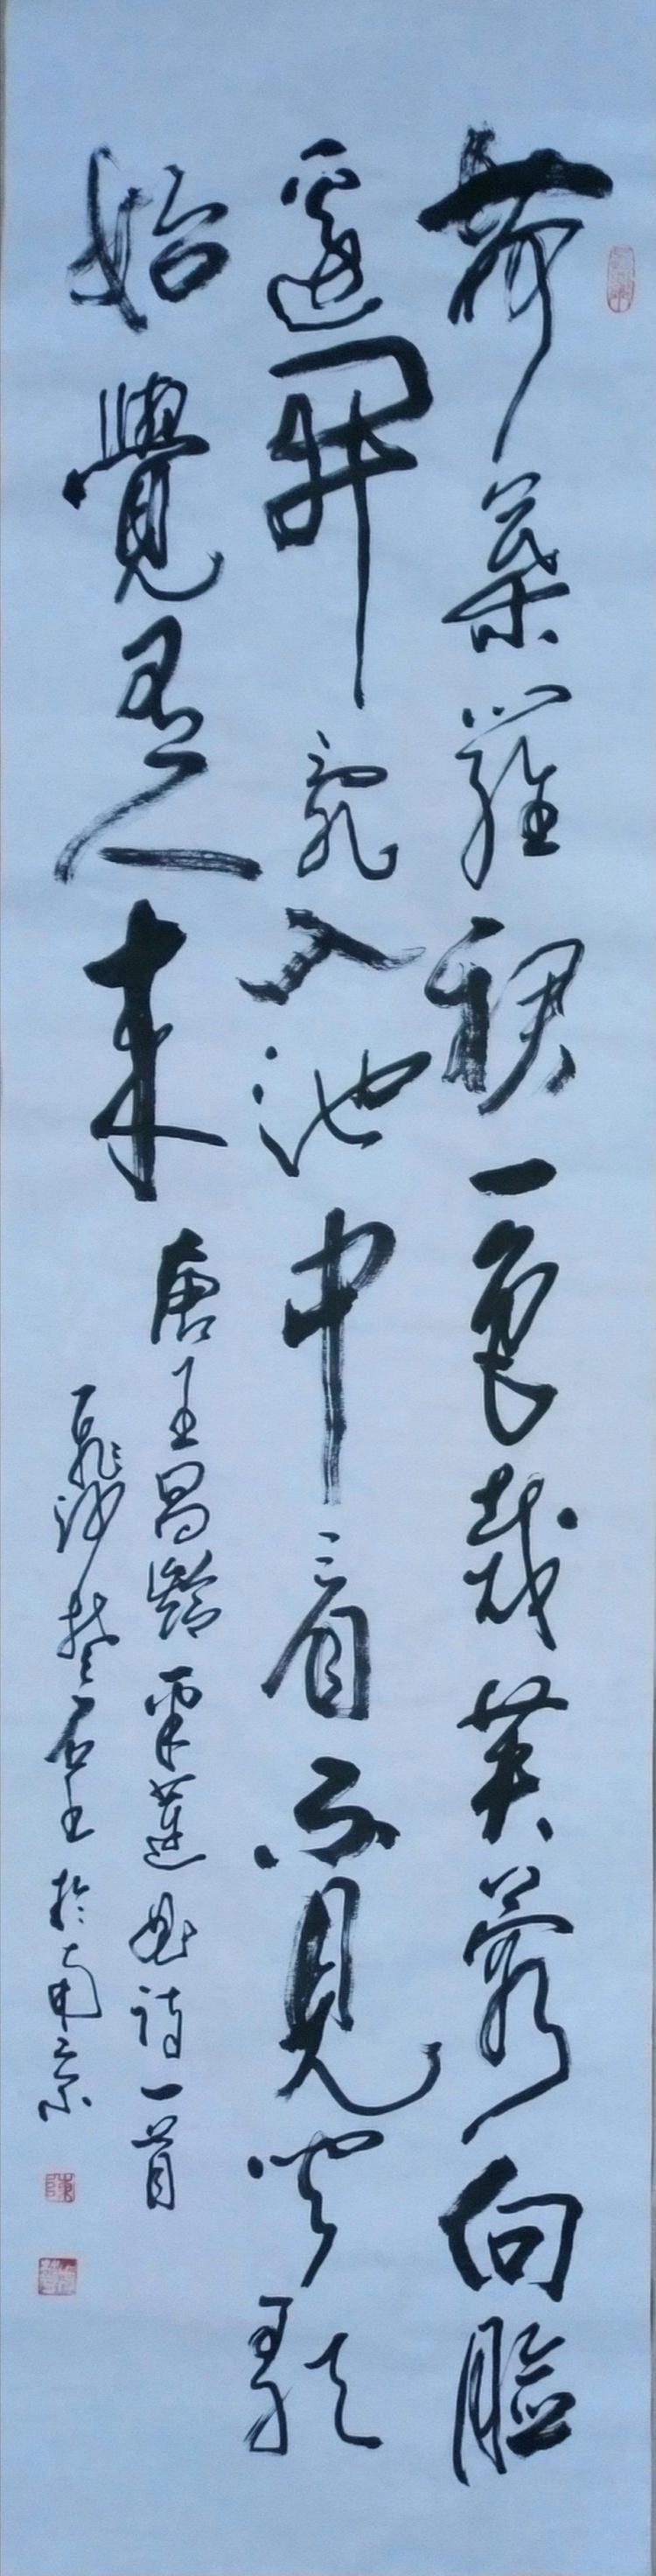 荷葉羅裙一色裁芙蓉向臉
邊開亂入池中看不見聞歌
始覺有人來
唐王昌齡采蓮曲詩一首
石主於南京